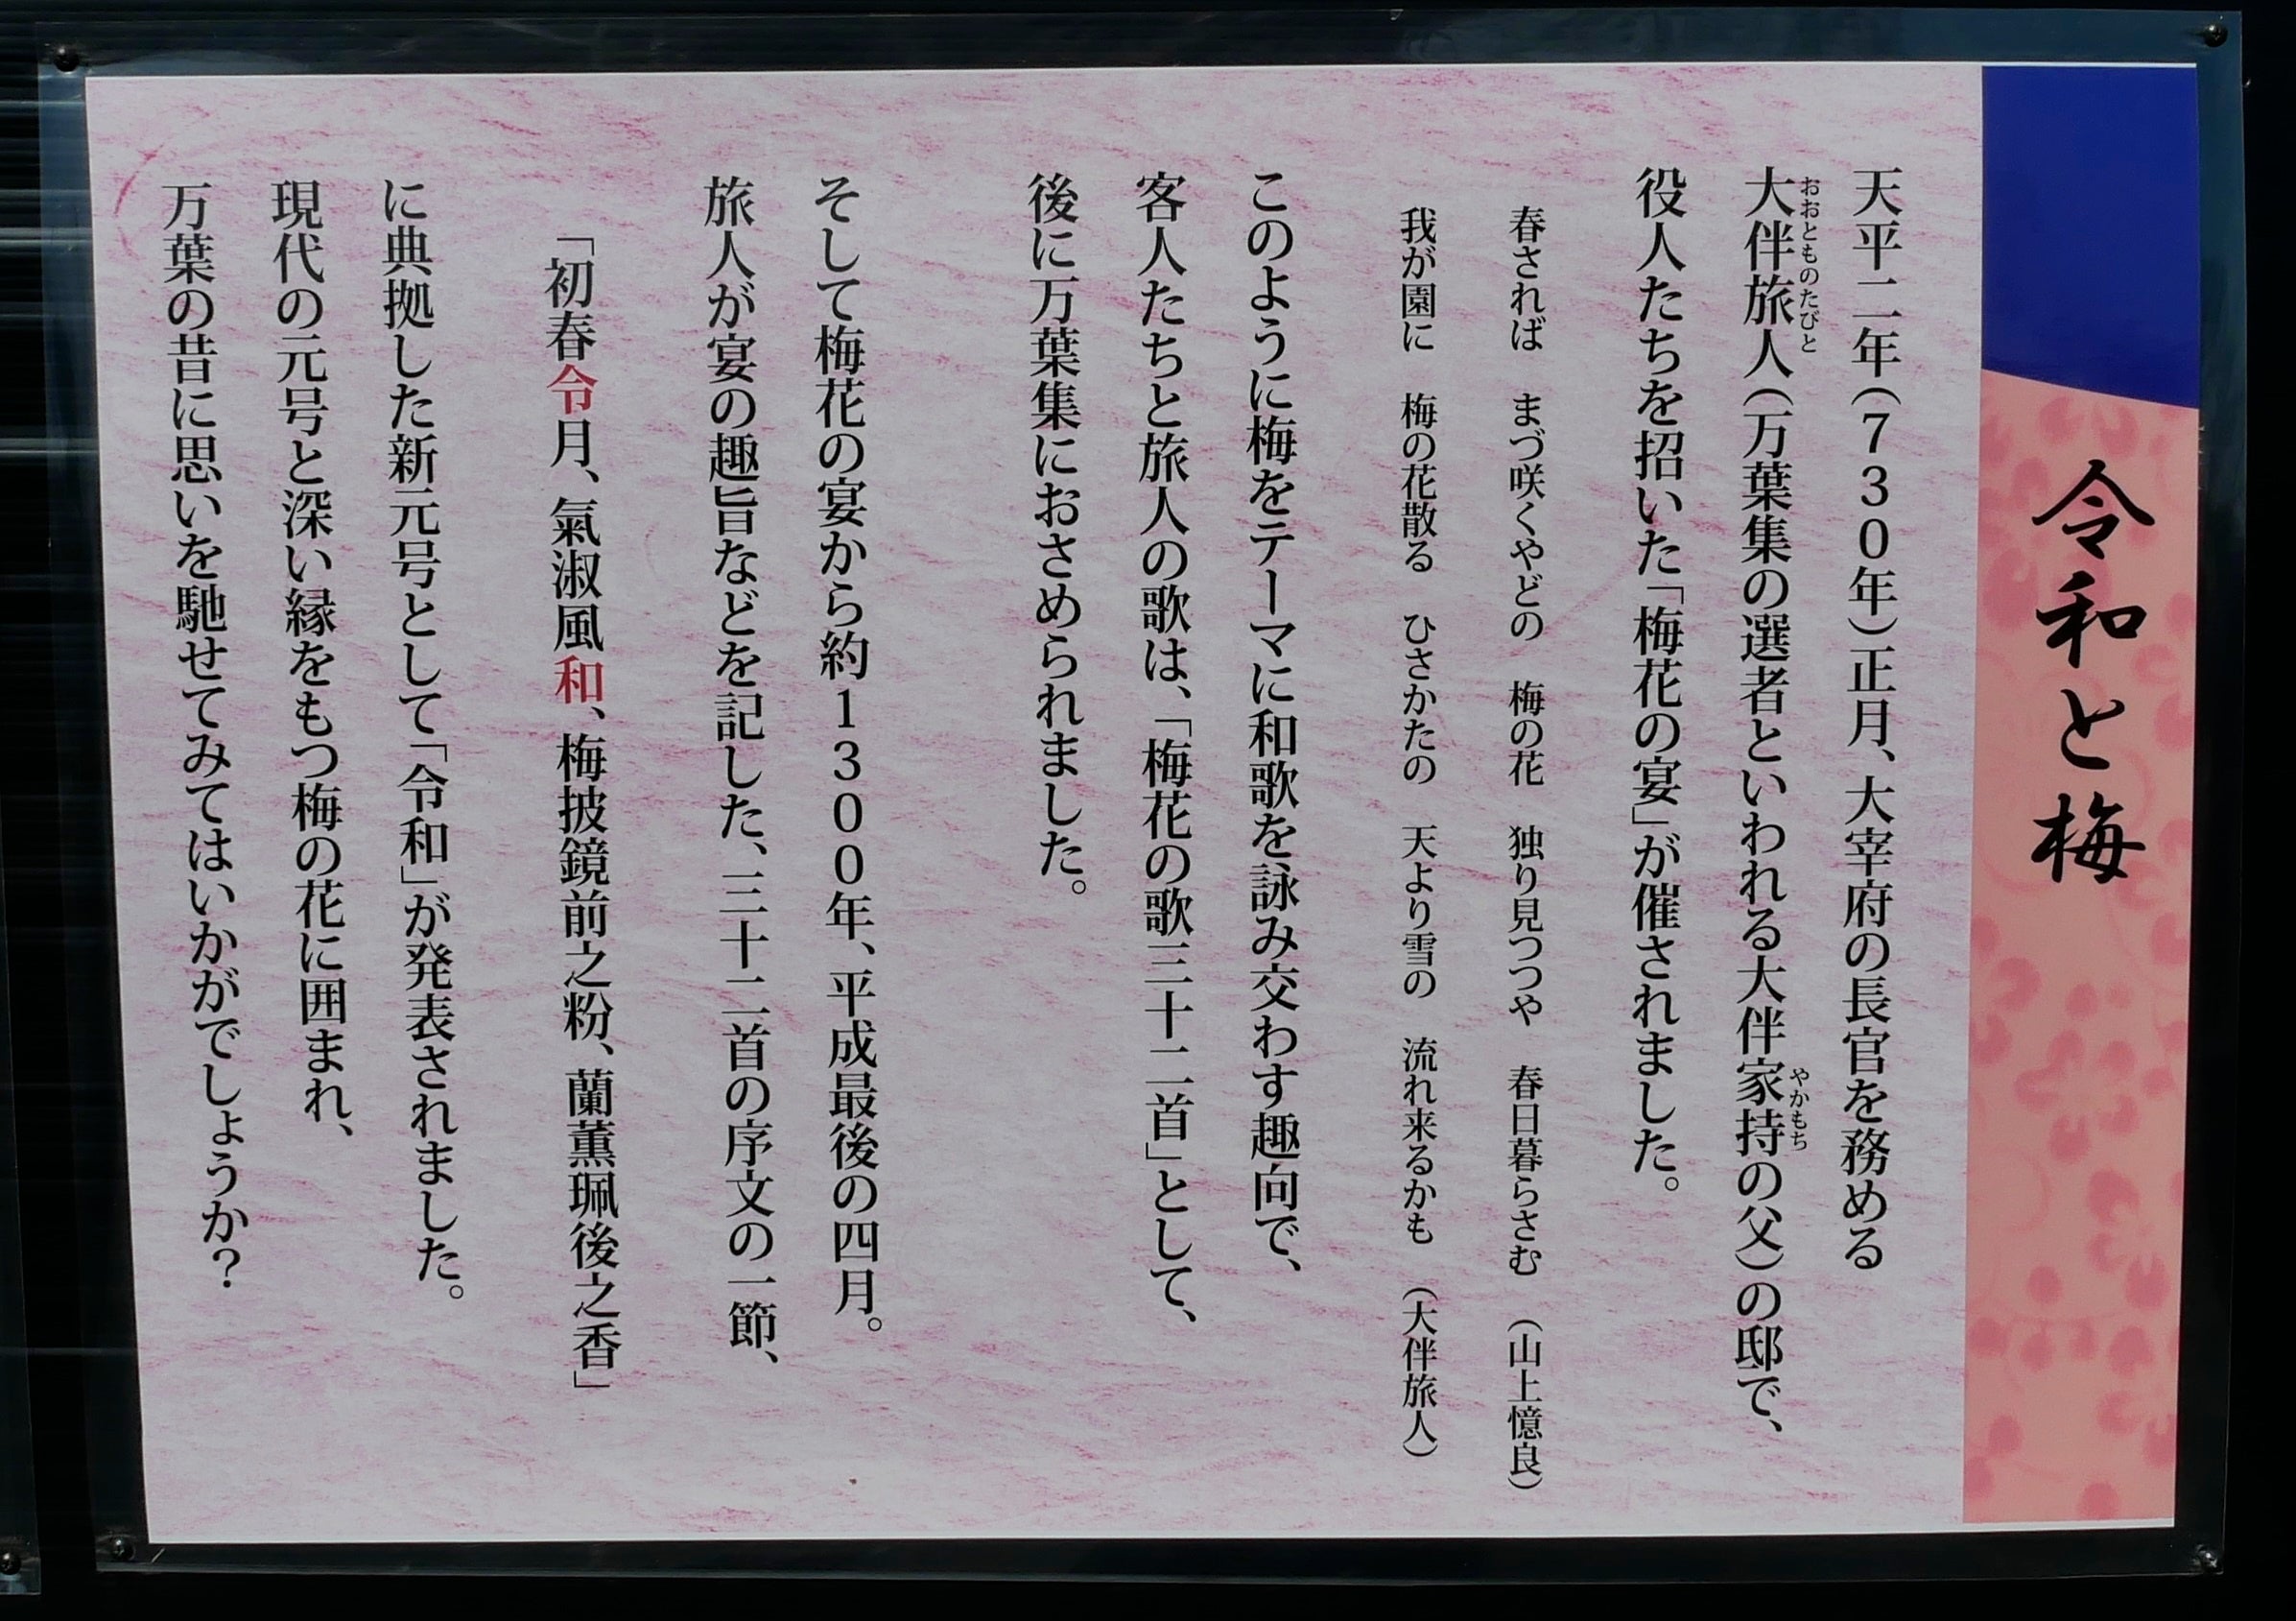 令和と梅
天平二年(730年)正月、大宰府の長官を務める
大伴旅人(万葉集の選者といわれる大伴家持の父)の邸で、
おおとものたびと
やかもち
役人たちを招いた「梅花の宴」が催されました。
春されば　まづ咲くやどの　梅の花　独り見つつや　春日暮らさむ　(山上憶良)
我が園に　梅の花散る　ひさかたの　天より雪の　流れ来るかも　(大伴旅人)
このように梅をテーマに和歌を詠み交わす趣向で、
客人たちと旅人の歌は、「梅花の歌三十二首」として、
後に万葉集におさめられました。
そして梅花の宴から約1300年、平成最後の四月。
旅人が宴の趣旨などを記した、三十二首の序文の一節、
「初春令月、氣淑風和、梅披鏡前之粉、蘭薫珮後之香」
に典拠した新元号として「令和」が発表されました。
現代の元号と深い縁をもつ梅の花に囲まれ、
万葉の昔に思いを馳せてみてはいかがでしょうか?